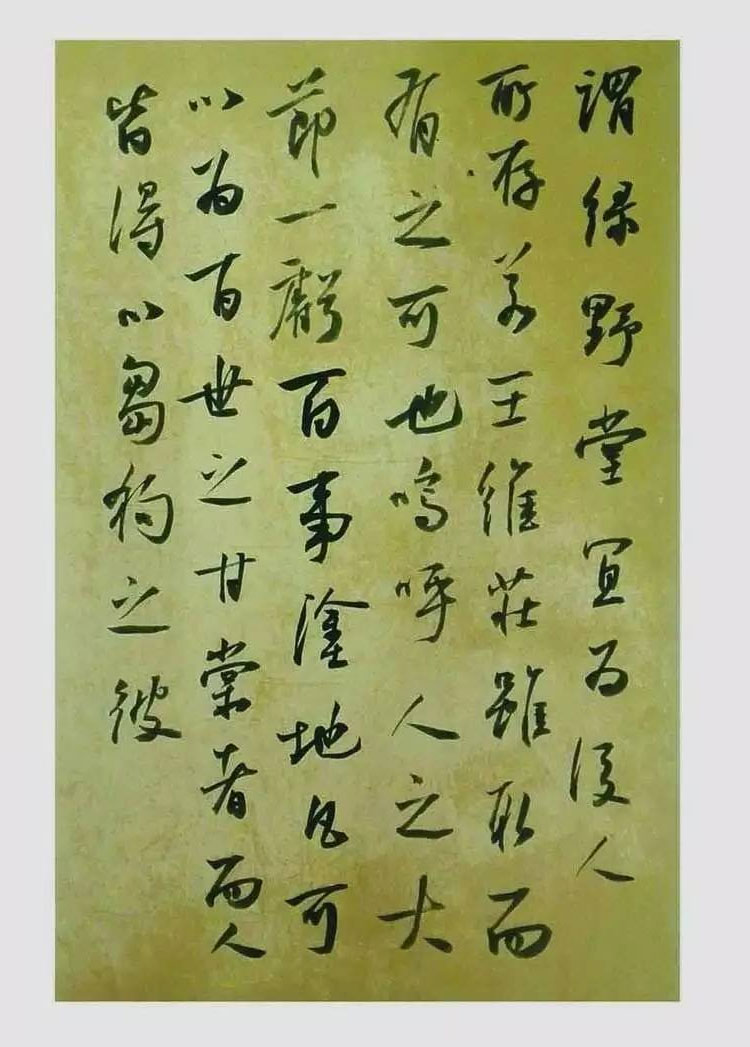 謂緑野堂宜為後人
所存若王維莊雖取而
有之可也嗚呼人之大
節一虧百事塗地凡可
以為百世之甘棠者而人
皆得以芻狗之彼